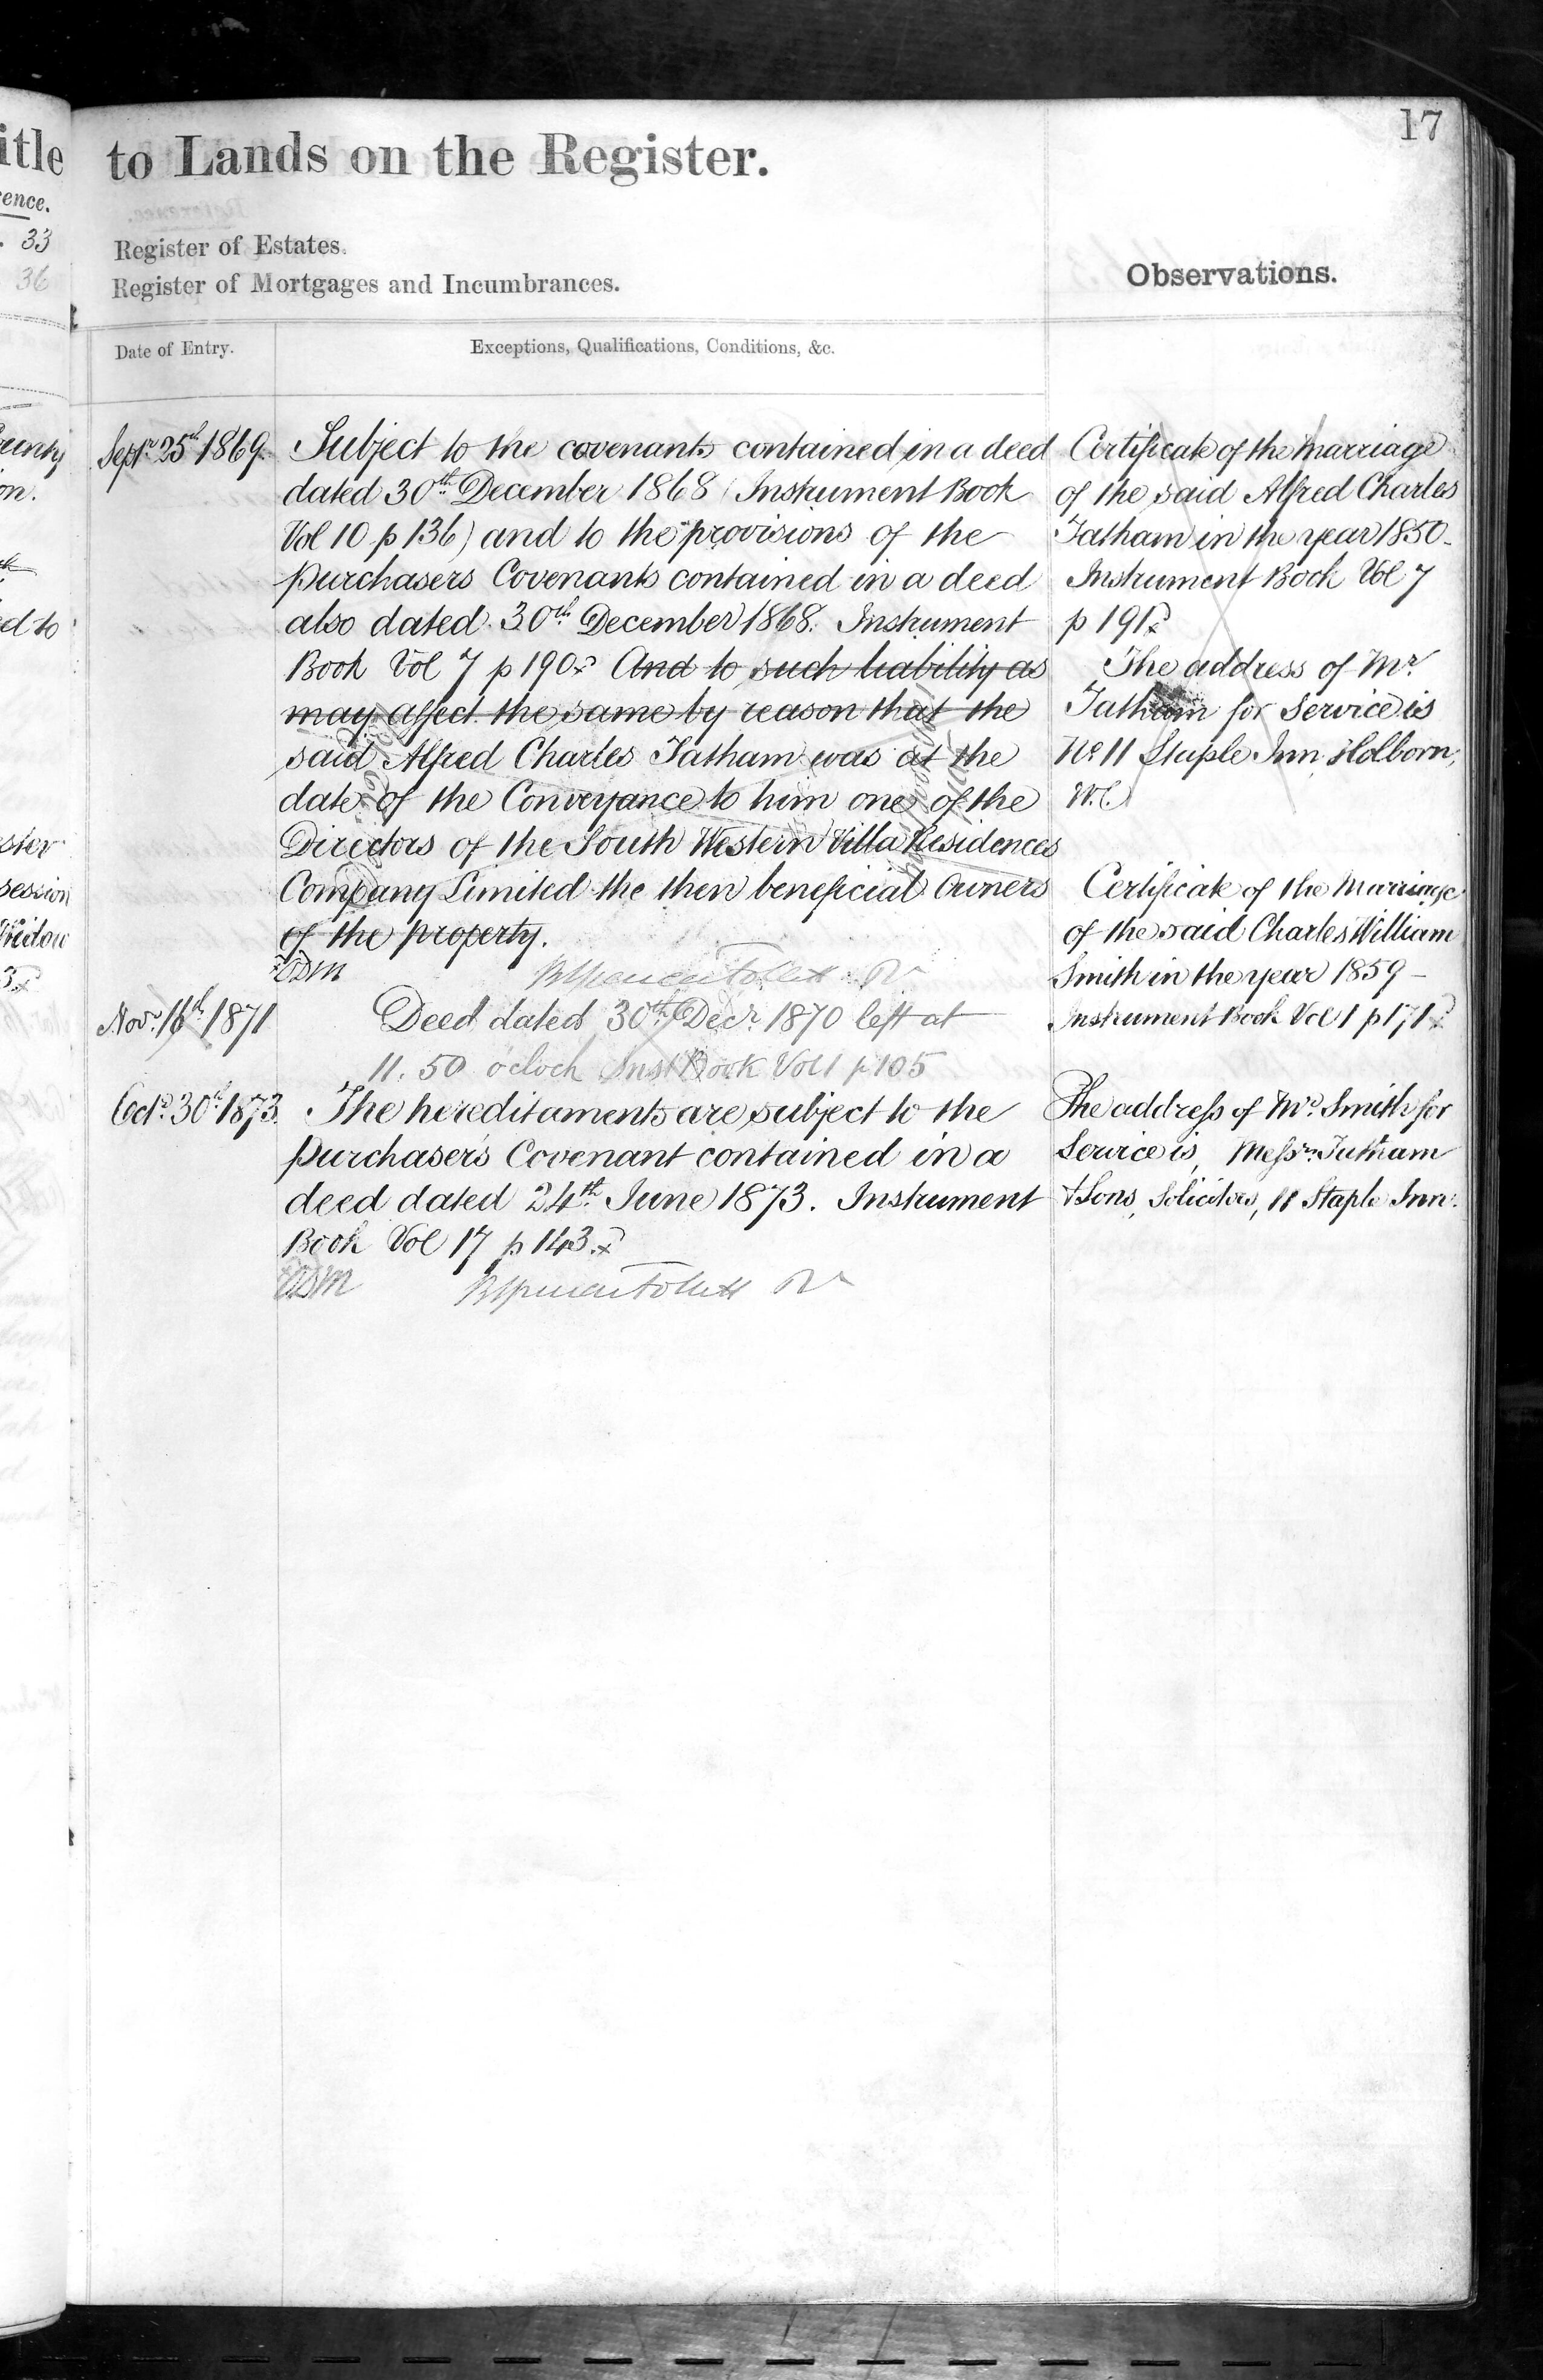 17
itle
to Lands on the Register.
ence.
33
36
Register of Estates.
Register of Mortgages and Incumbrances.
Observations.
Date of Entry.
Exceptions, Qualifications, Conditions, &c.
Septr. 25th 1869.
Subject to the covenants contained in a deed
dated 30th December 1868 (Instrument Book
Vol 10 p 136) and to the provisions of the
purchasers Covenants contained in a deed
also dated 30th December 1868. Instrument
Book Vol 7 p 190. And to such liability as
may affect the same by reason that the
said Alfred Charles Tatham was at the
date of the Conveyance to him one of the
Directors of the South Western Villa Residences
Company Limited the then beneficial Owners
of the property.
Novr. 16th 1871
Deed dated 30th Decr. 1870 left at
11.50 o'cloch Inst Book Vol 1 p 105
Octr. 30th 1873.
The hereditaments are subject to the
Purchaser's Covenant contained in a
deed dated 24th June 1873. Instrument
Book Vol 17 p 143.
Certificate of the Marriage
of the said Alfred Charles
Tatham in the year 1850-
Instrument Book Vol 7
p 191.
The address of Mr.
Tatham for Service is
No. 11 Staple Inn, Holborn,
W.C.
Certificate of the Marriage
of the said Charles William
Smith in the year 1859-
Instrument Book Vol 1 p 171
The address of Mr. Smith for
Service is, Messrs. Tatham
& Sons, Solicitors, 11 Staple Inn.